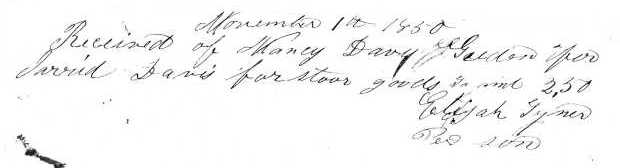 November 1th 1850
Received of Nancy Davy Gu for
David Davis for stoor goods 2,50
Elijah Tyner
Per son